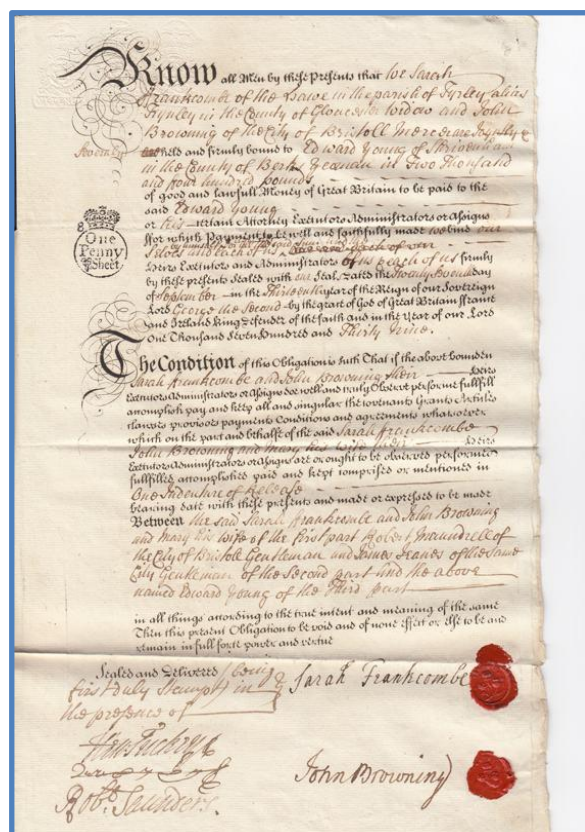 Know all Men by these Presents that We Sarah
Frankcombe of the Hawe in the parish of Tyrley alias
Tynley in the County of Gloucester Widow and John
Browning of the City of Bristoll Mercer are Joyntly &
Severally held and firmly bound to Edward Young of Shrivenham
in the County of Berks Yeoman in Two Thousand
and four hundred pounds
of good and lawfull Money of Great Britain to be paid to the
said Edward Young
or his certain Attorney Executors Administrators or Assigns
ffor which Payment to be well and faithfully made we bind our
Selves and each of us
Heirs Executors and Administrators of us & each of us firmly
by these presents Sealed with our Seals Dated the Twenty Second day
of September in the Thirteenth year of the Reign of our Sovereign
Lord George the Second by the grace of God of Great Britain ffrance
and Ireland King Defender of the faith and in the Year of our Lord
One Thousand Seven Hundred and Thirty Nine.
8
One
Penny
Sheet
The Condition of this Obligation is such That if the above bounden
Sarah Frankcombe and John Browning their Heirs
Executors Administrators or Assigns do well and truly Observe performe fullfill
accomplish pay and keep all and singular the Covenants Grants Articles
Clauses provisoes payments Conditions and agreements whatsoever
which on the part and behalfe of the said Sarah Frankcombe
John Browning and Mary his Wife their Heirs
Executors Administrators or Assigns are or ought to be observed performed
fullfilled accomplished paid and kept comprised or mentioned in
One Indenture of Release
bearing date with these presents and made or expressed to be made
Between the said Sarah Frankcombe and John Browning
and Mary his Wife of the First part Robert Maundrell of
the City of Bristoll Gentleman and James Jeanes of the same
City Gentleman of the Second part And the above
named Edward Young of the Third part
in all things according to the true intent and meaning of the same
Then this present Obligation to be void and of none effect or else to be and
remain in full force power and vertue
Sealed and Delivered (being
first duly Stampt) in
the presence of
Sarah Frankcombe
John Browning
Robt. Saunders.